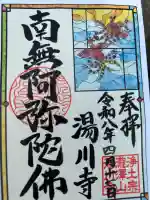 奉拝
令和六年四月廿二日
南無阿弥陀佛
湯川寺
浄土宗